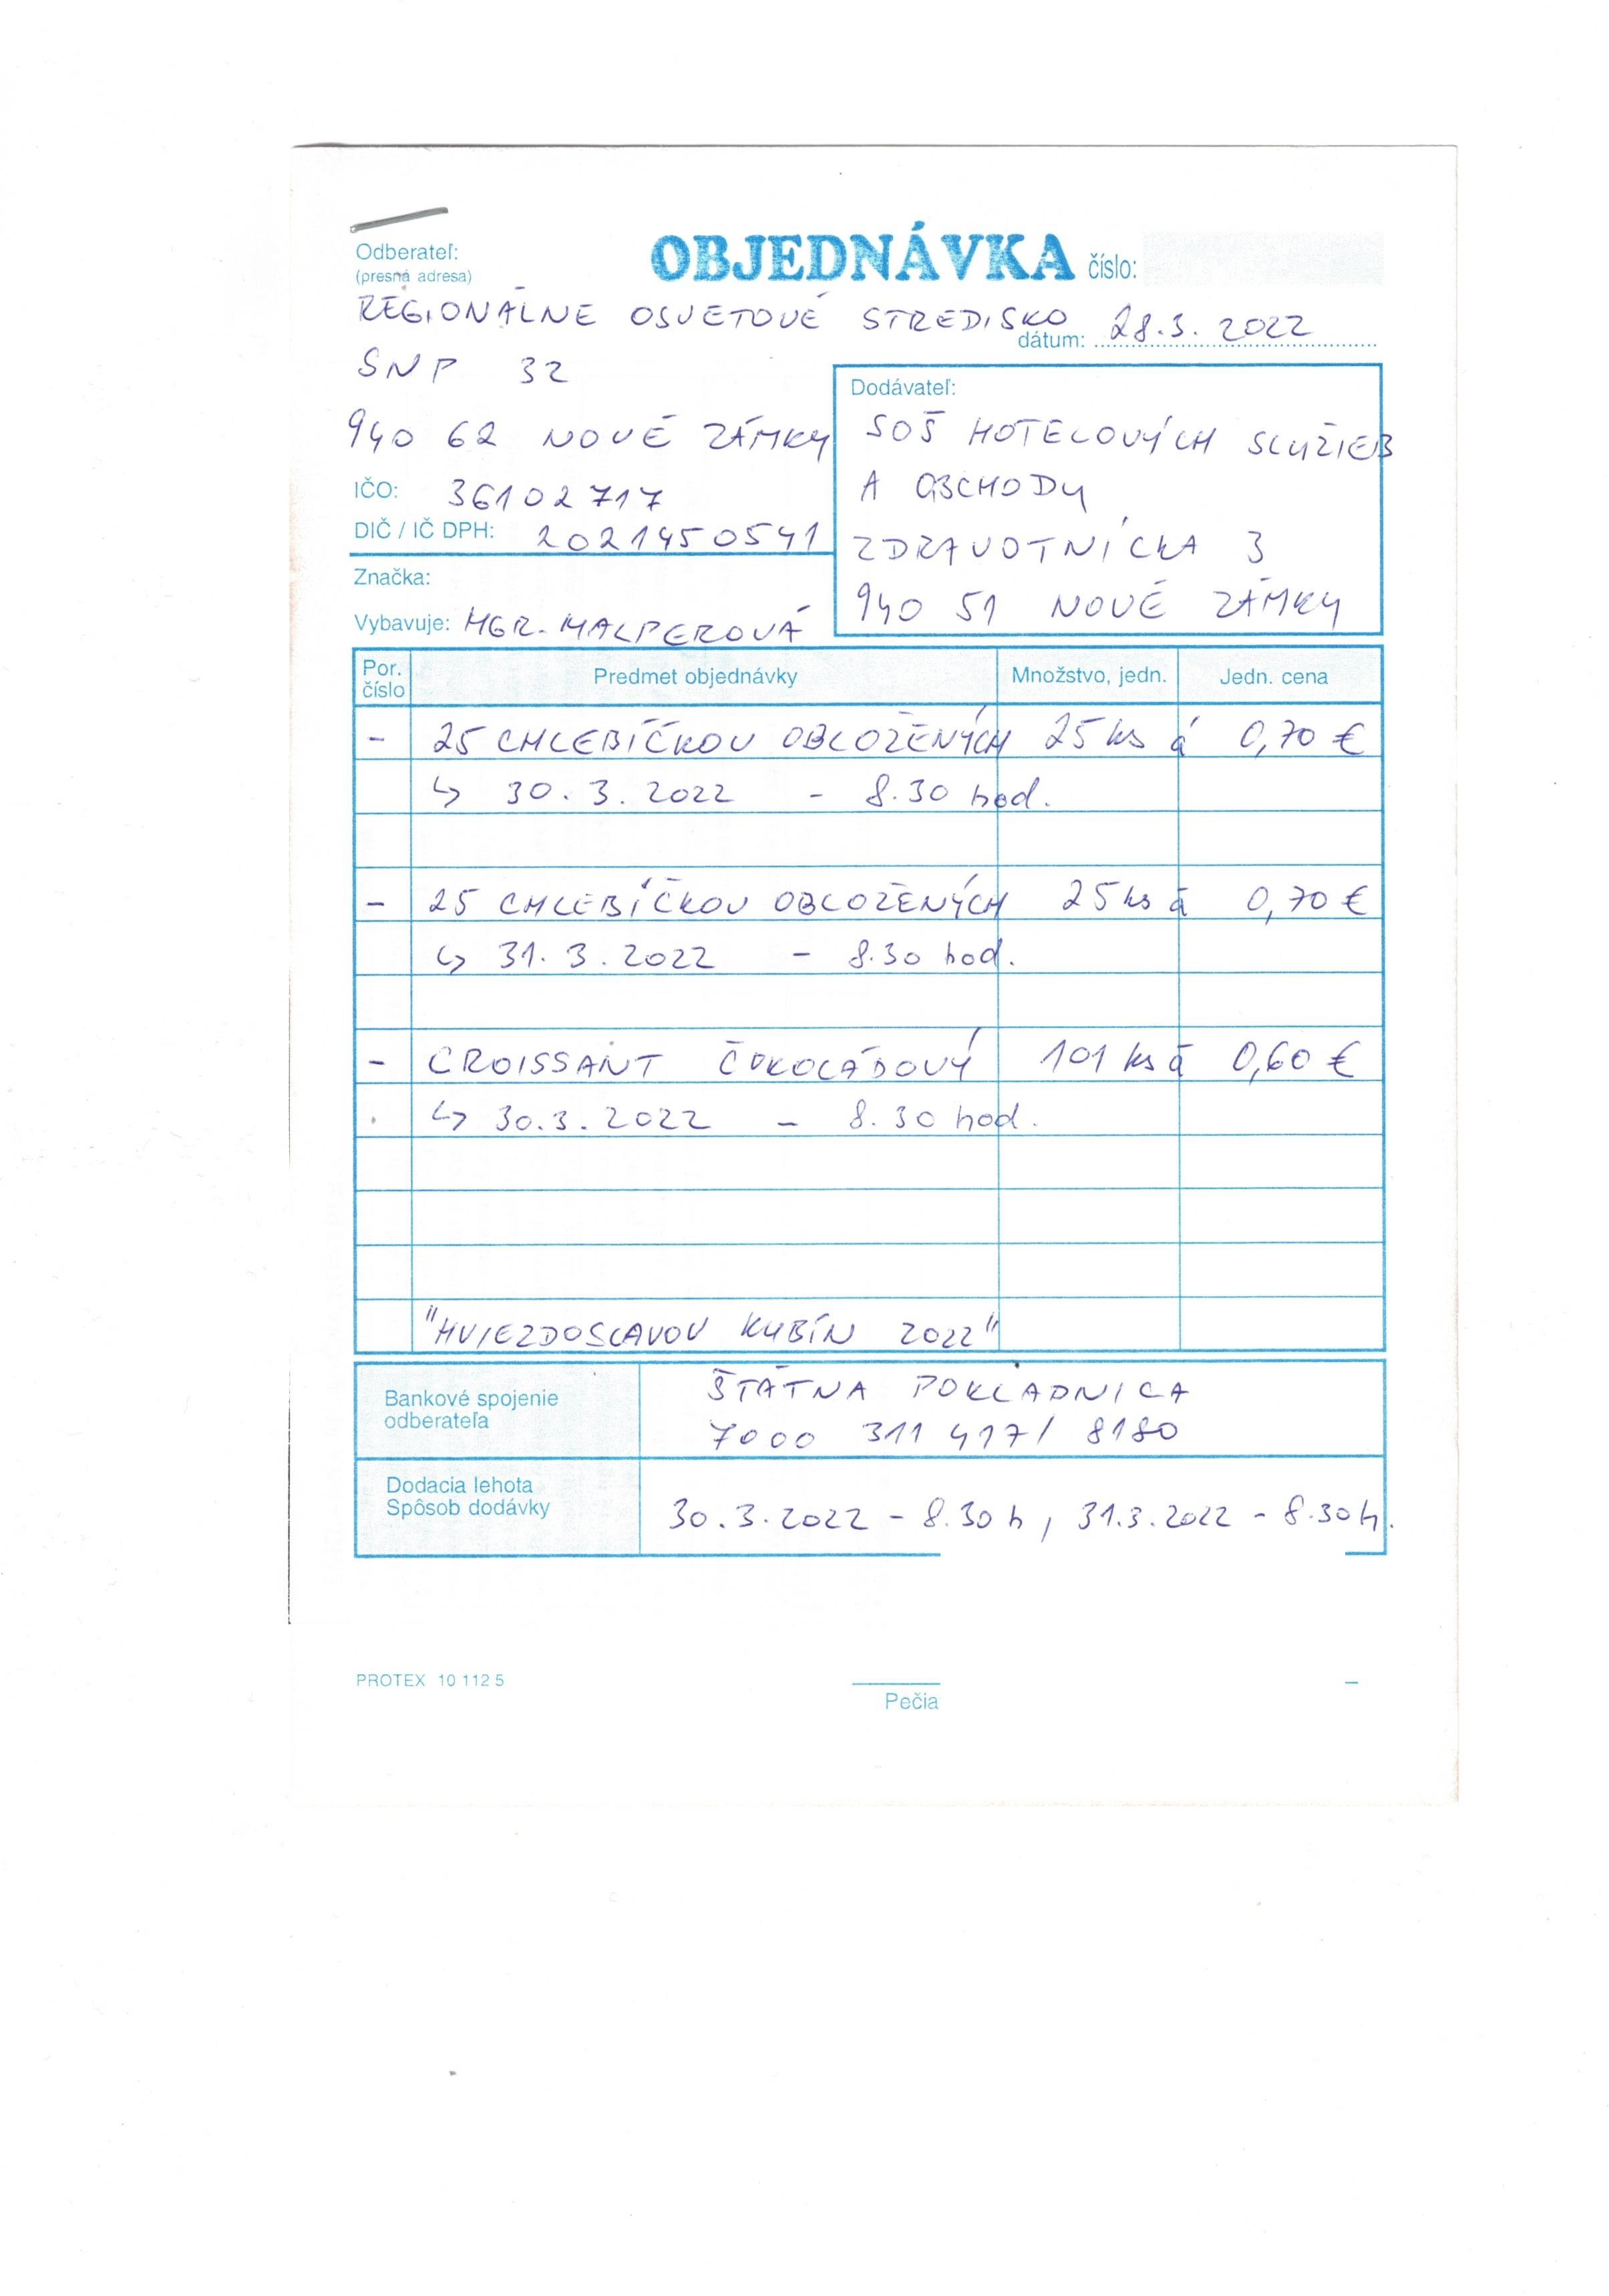 Odberateľ:
(presná adresa)
OBJEDNÁVKA číslo:
REGIONÁLNE OSVETOVÉ STREDISKO
dátum: 28.3.2022
SNP 32
940 62 NOVÉ ZÁMKY
IČO: 36102717
DIČ / IČ DPH: 2021450541
Značka:
Vybavuje: MGR. MALPEROVÁ
Dodávateľ:
SOŠ HOTELOVÝCH SLUŽIEB
A OBCHODU
ZDRAVOTNÍCKA 3
940 51 NOVÉ ZÁMKY
Por. číslo Predmet objednávky Množstvo, jedn. Jedn. cena
- 25 CHLEBÍČKOV OBLOŽENÝCH 25 ks á 0,70 €
↳ 30.3.2022 - 8.30 hod.
- 25 CHLEBÍČKOV OBLOŽENÝCH 25 ks á 0,70 €
↳ 31.3.2022 - 8.30 hod.
- CROISSANT ČOKOLÁDOVÝ 101 ks á 0,60 €
↳ 30.3.2022 - 8.30 hod.
"HVIEZDOSLAVOV KUBÍN 2022"
Bankové spojenie
odberateľa
ŠTÁTNA POKLADNICA
7000 311 417/ 8180
Dodacia lehota
Spôsob dodávky
30.3.2022 - 8.30 h, 31.3.2022 - 8.30 h.
PROTEX 10 112 5
Pečia